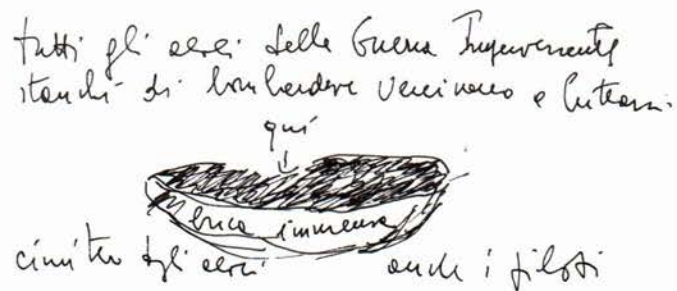 tutti gli aerei della Guerra
stanchi di bombardare venivano a buttarsi
qui
buca immensa
cimitero degli aerei anche i piloti